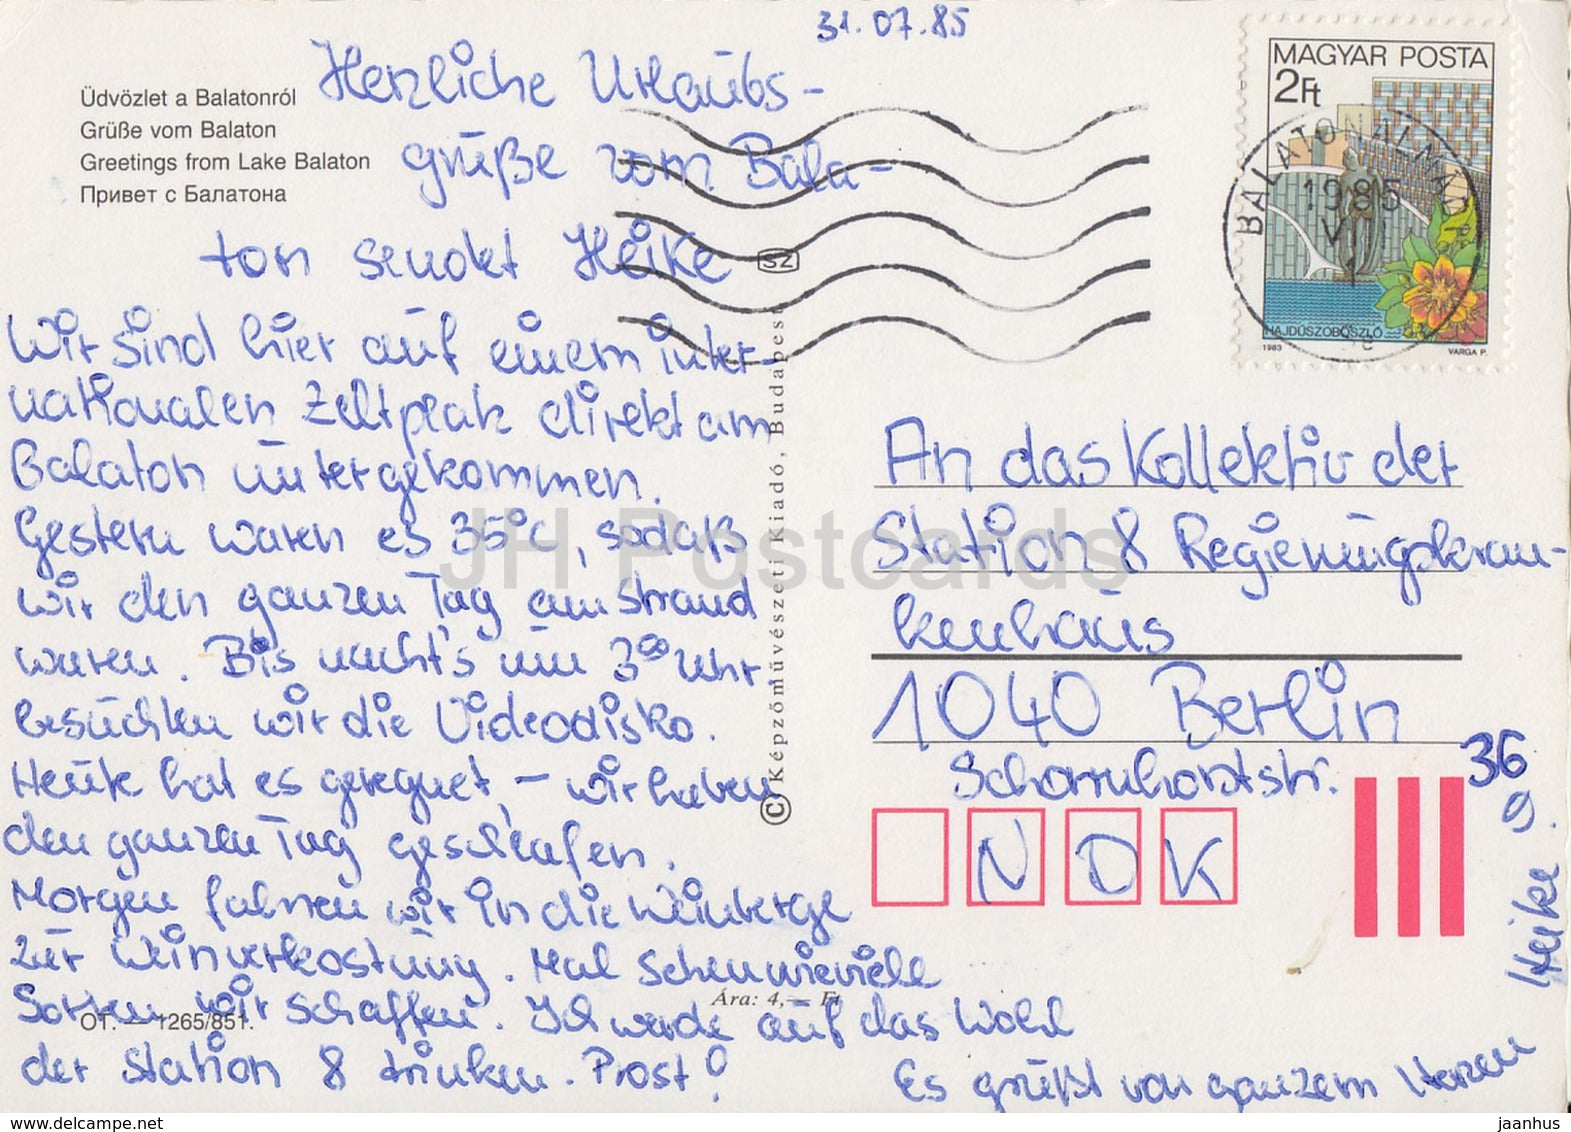 31.07.85
Üdvözlet a Balatonról
Grüße vom Balaton
Greetings from Lake Balaton
Привет с Балатона
Herzliche Urlaubs-
grüße vom Bala-
ton sendet Heike
Wir sind hier auf einem inter-
nationalen Zeltplatz direkt am
Balaton untergekommen.
Gestern waren es 35°C, sodaß
wir den ganzen Tag am Strand
waren. Bis nacht's um 3⁰⁰ Uhr
besuchten wir die Videodisko.
Heute hat es geregnet, – wir haben
den ganzen Tag geschlafen.
Morgen fahren wir in die Weinberge
zur Weinverkostung. Mal sehen wieviele
Sorten wir schaffen. Ich werde auf das Wohl
der Station 8 trinken. Prost!
Es grüßt von ganzem Herzen
Heike
SZ
© Képzőművészeti Kiadó, Budapest
Ára: 4,— Ft
OT. — 1265/851.
MAGYAR POSTA
2Ft
BALATONALMÁDI
1985
HAJDÚSZOBOSZLÓ
1983 VARGA P.
An das Kollektiv der
Station 8 Regierungskran-
kenhaus
1040 Berlin
Scharnhorststr. 36
N D K
JH Postcards
delcampe.net
jaanhus